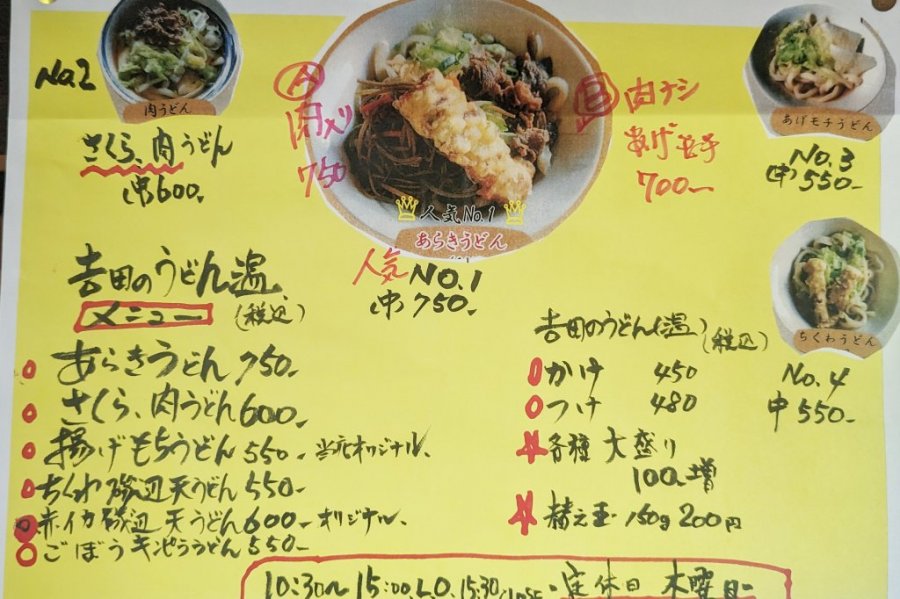 No.2
肉うどん
さくら、肉うどん
(中)600.
A
肉入り
750
人気No.1
あらきうどん
人気 NO.1
(中)750.
B 肉ナシ
あげモチ
700-
あげモチうどん
No.3
(中)550-
ちくわうどん
No.4
中550-
吉田のうどん温
メニュー (税込)
あらきうどん750-
さくら、肉うどん600-
揚げもちうどん550-当店オリジナル、
ちくわ磯辺天うどん550-
赤イカ磯辺天うどん600-オリジナル、
ごぼうキンピラうどん550-
吉田のうどん(温) (税込)
かけ 450
つけ 480
各種大盛り
100-増
替え玉・150g200円
10:30~15:00.L.O.15:30 定休日 木曜日-